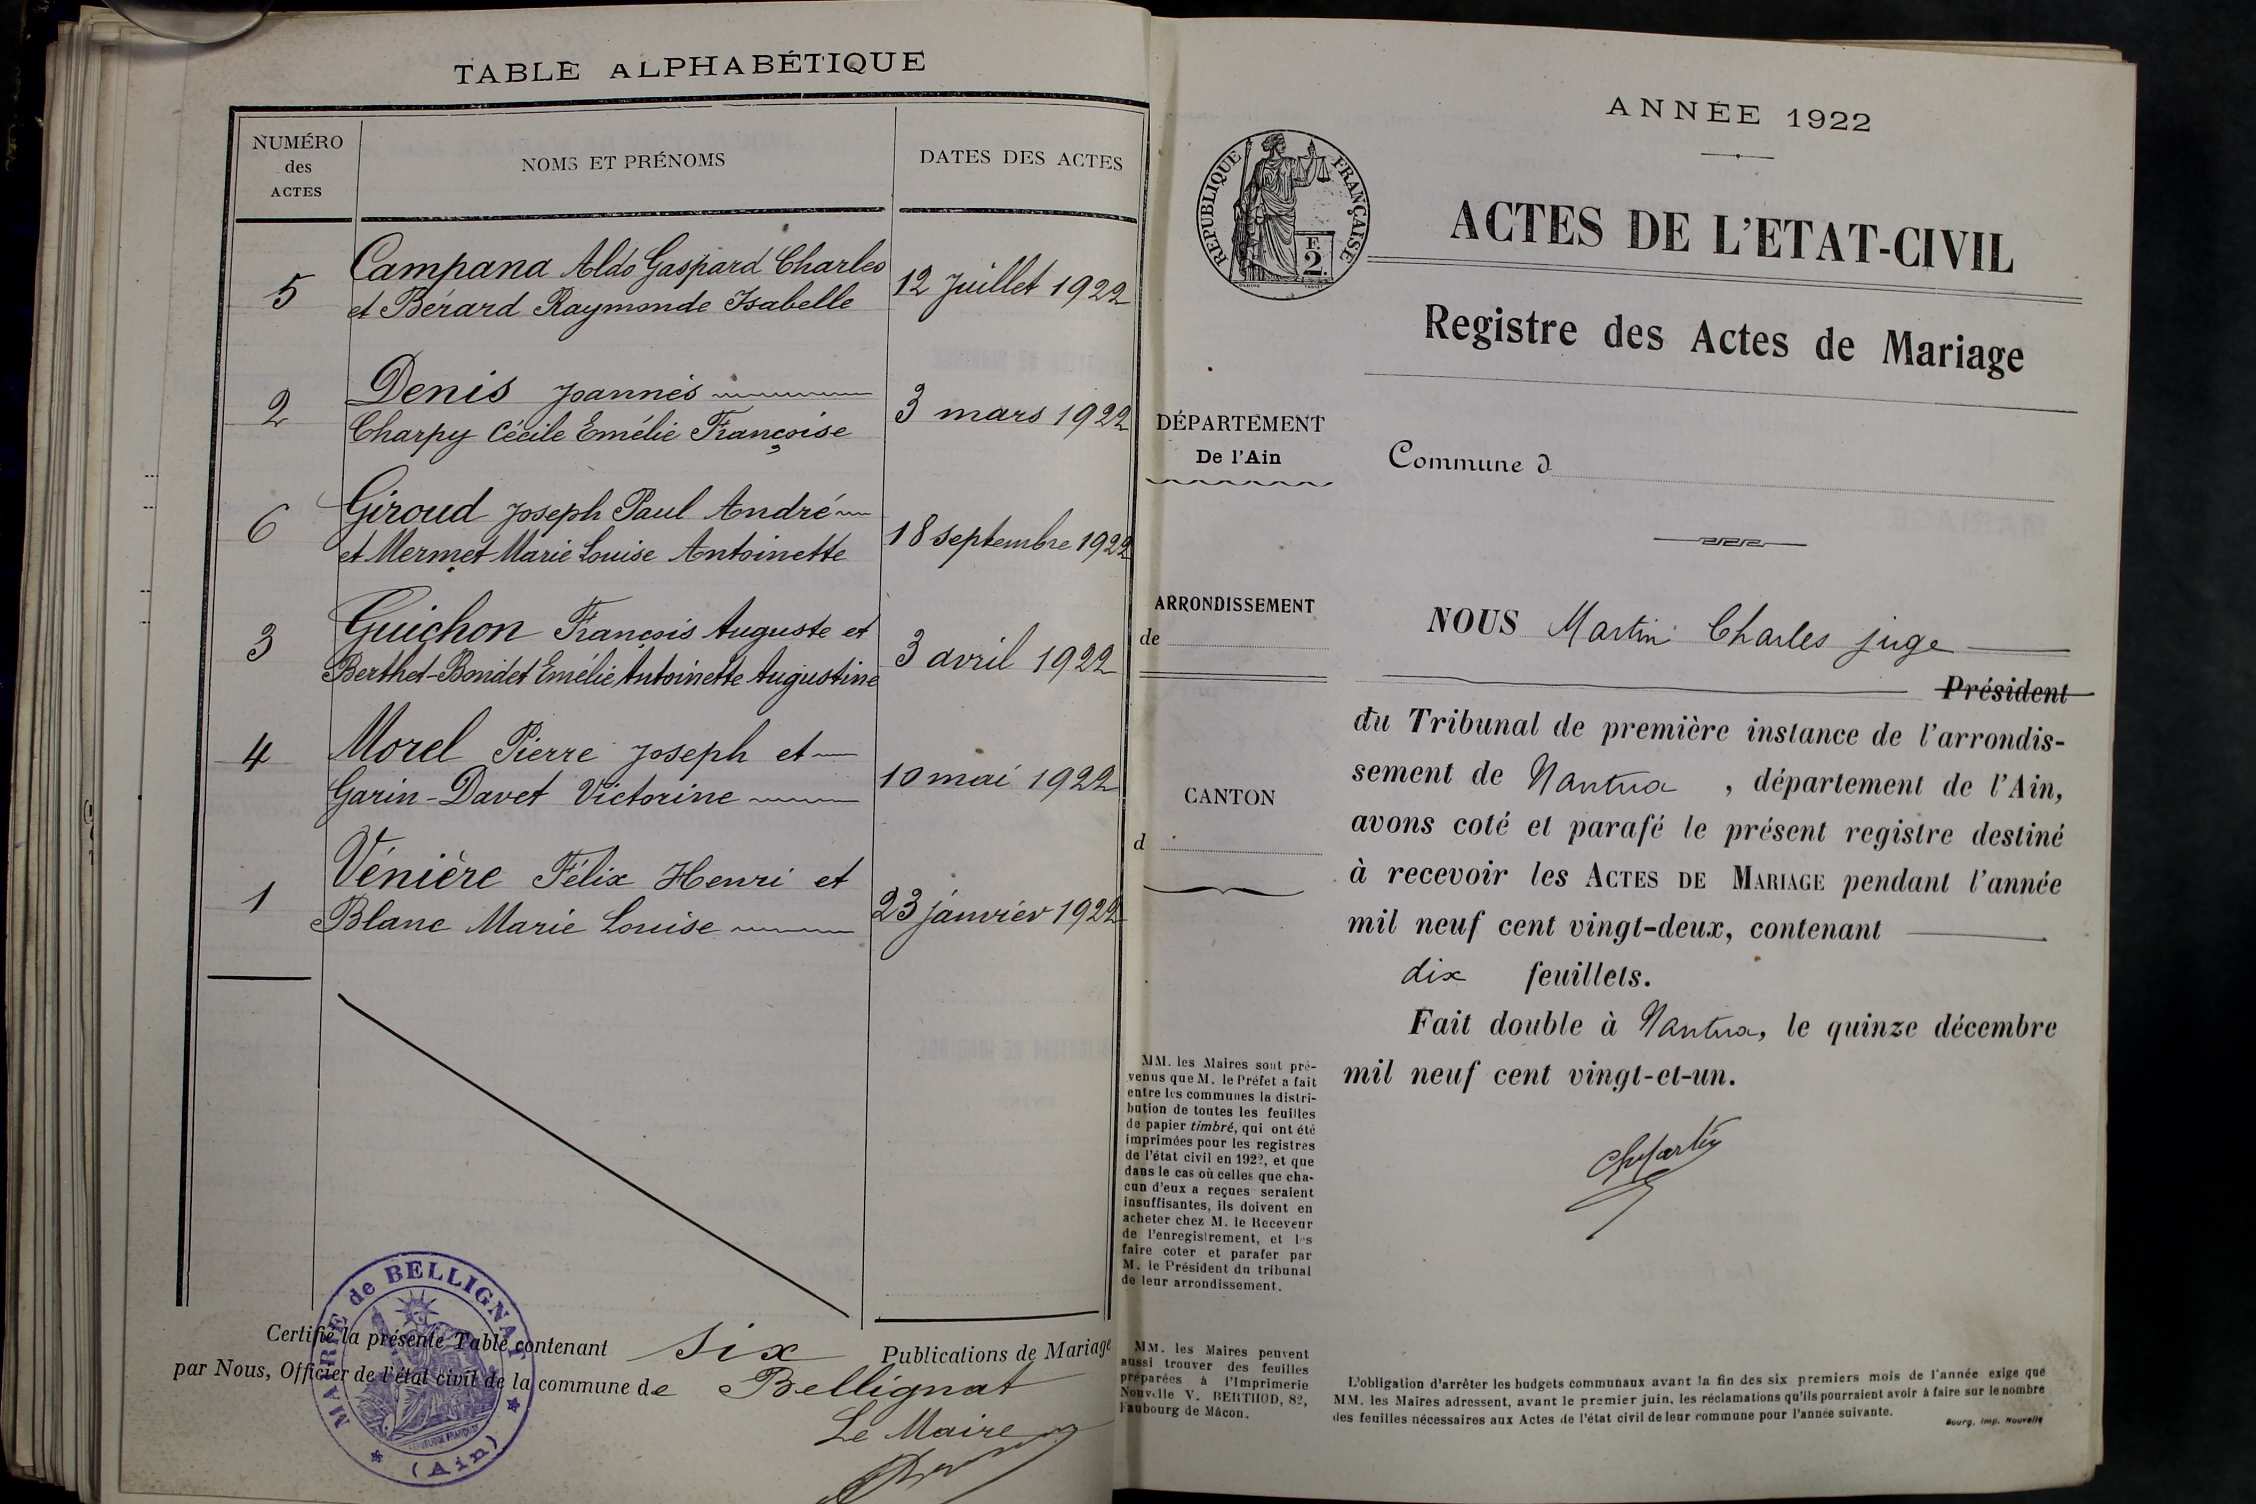 TABLE ALPHABÉTIQUE
NUMÉRO
des
ACTES
NOMS ET PRÉNOMS
DATES DES ACTES
5
Campana Aldo Gaspard Charles
et Bérard Raymonde Isabelle
12 Juillet 1922
2
Denis Joannès
Charpy Cécile Emélie Françoise
3 mars 1922
6
Giroud Joseph Paul André
et Mermet Marie Louise Antoinette
18 septembre 1922
3
Guichon François Auguste et
Berthet-Bondet Emélie Antoinette Augustine
3 avril 1922
4
Morel Pierre Joseph et
Garin-Davet Victorine
10 mai 1922
1
Vénière Félix Henri et
Blanc Marie Louise
23 janvier 1922
Certifié la présente Table contenant six Publications de Mariage
par Nous, Officier de l'état civil de la commune de Bellignat
Le Maire
MAIRIE de BELLIGNAT
(Ain)
RÉPUBLIQUE FRANÇAISE
F.
2.
DÉPARTEMENT
De l'Ain
ARRONDISSEMENT
de
CANTON
d
MM. les Maires sont pré-
venus que M. le Préfet a fait
entre les communes la distri-
bution de toutes les feuilles
de papier timbré, qui ont été
imprimées pour les registres
de l'état civil en 1922, et que
dans le cas où celles que cha-
cun d'eux a reçues seraient
insuffisantes, ils doivent en
acheter chez M. le Receveur
de l'enregistrement, et les
faire coter et parafer par
M. le Président du tribunal
de leur arrondissement.
MM. les Maires peuvent
aussi trouver des feuilles
préparées à l'Imprimerie
Nouvelle V. BERTHOD, 82,
Faubourg de Mâcon.
ANNÉE 1922
ACTES DE L'ETAT-CIVIL
Registre des Actes de Mariage
Commune d
NOUS Martin Charles juge
Président
du Tribunal de première instance de l'arrondis-
sement de Nantua , département de l'Ain,
avons coté et parafé le présent registre destiné
à recevoir les ACTES DE MARIAGE pendant l'année
mil neuf cent vingt-deux, contenant
dix feuillets.
Fait double à Nantua, le quinze décembre
mil neuf cent vingt-et-un.
ChMartin
L'obligation d'arrêter les budgets communaux avant la fin des six premiers mois de l'année exige que
MM. les Maires adressent, avant le premier juin, les réclamations qu'ils pourraient avoir à faire sur le nombre
des feuilles nécessaires aux Actes de l'état civil de leur commune pour l'année suivante.
Bourg, Imp. Nouvelle